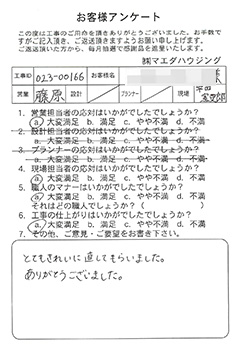 お客様アンケート
この度は工事のご用命を頂きありがとうございました。お手数で
すがご記入頂き、ご返送頂きますようお願い申し上げます。
ご返送頂いた方から、毎月抽選で感謝品を進呈いたします。
㈱マエダハウジング
工事ID 023-00166 お客様名 様
営業 藤原 設計 プランナー 現場
1. 営業担当者の応対はいかがでしたでしょうか?
a. 大変満足 b. 満足 c. やや不満 d. 不満
2. 設計担当者の応対はいかがでしたでしょうか?
a. 大変満足 b. 満足 c. やや不満 d. 不満
3. プランナーの応対はいかがでしたでしょうか?
a. 大変満足 b. 満足 c. やや不満 d. 不満
4. 現場担当者の応対はいかがでしたでしょうか?
a. 大変満足 b. 満足 c. やや不満 d. 不満
5. 職人のマナーはいかがでしたでしょうか?
a. 大変満足 b. 満足 c. やや不満 d. 不満
それはどの職人でしょうか? ( )
6. 工事の仕上がりはいかがでしたでしょうか?
a. 大変満足 b. 満足 c. やや不満 d. 不満
7. その他、ご意見・ご要望をお書き下さい。
とてもきれいに直してもらいました。
ありがとうございました。